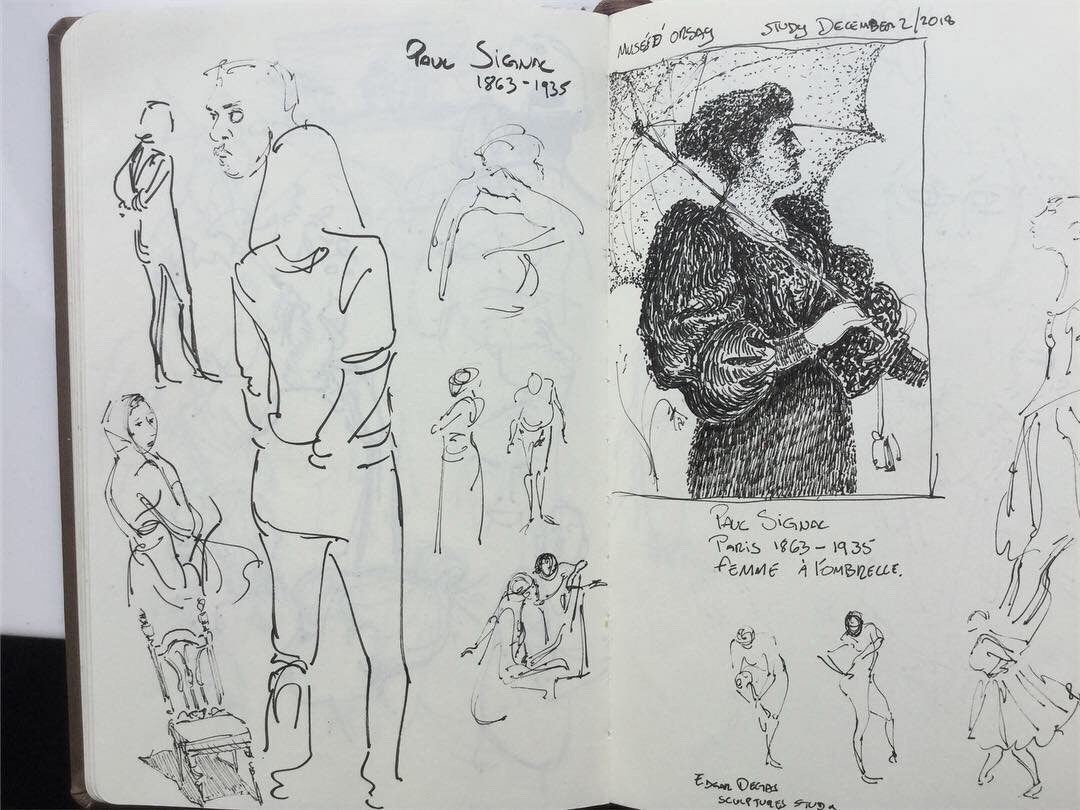 Paul Signac
1863-1935
Musée D' Orsay Study December 2/2018
Paul Signac
Paris 1863-1935
Femme à l'ombrelle.
Edgar Degas
Sculptures Study